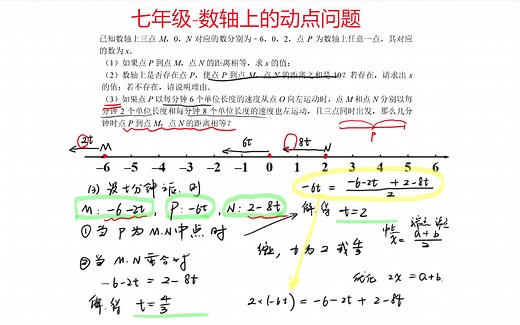 七年级-数轴上的动点问题
已知数轴上三点 M,O,N 对应的数分别为 -6,0,2,点 P 为数轴上任意一点,其对应
的数为 x.
(1)如果点 P 到点 M,点 N 的距离相等,求 x 的值;
(2)数轴上是否存在点 P,使点 P 到点 M,点 N 的距离之和是 10?若存在,请求出 x
的值;若不存在,请说明理由.
(3)如果点 P 以每分钟 6 个单位长度的速度从点 O 向左运动时,点 M 和点 N 分别以每
分钟 2 个单位长度和每分钟 8 个单位长度的速度也向左运动,且三点同时出发,那么几分
钟时点 P 到点 M,点 N 的距离相等?
P
2t M 6t 8t N
-6 -5 -4 -3 -2 -1 0 1 2 3 4 5 6
(3) 设 t 分钟 时
-6t = (-6-2t + 2-8t)/2
M: -6-2t, P: -6t, N: 2-8t
解得 t=2
① 当 P 为 M.N 中点 时
x = (a+b)/2
t 为 2 或 4/3
② 当 M.N 重合时
-6-2t = 2-8t
2x = a+b
解得 t = 4/3
2×(-6t) = -6-2t + 2-8t